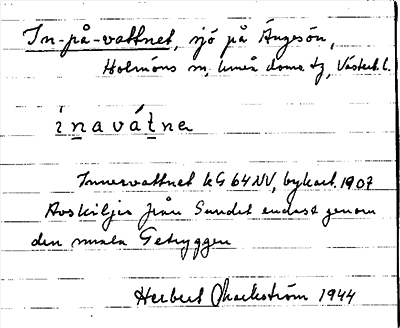 In-på-vattnet, sjö på Ängesön,
Holmöns sn, Umeå doms. tg, Västerb. l.
i̱ṉavát̲na
Innervattnet kG 64 NV, bykart. 1907
Avskiljes från Sundet endast genom
den smala Getryggen
Herbert Markström 1944